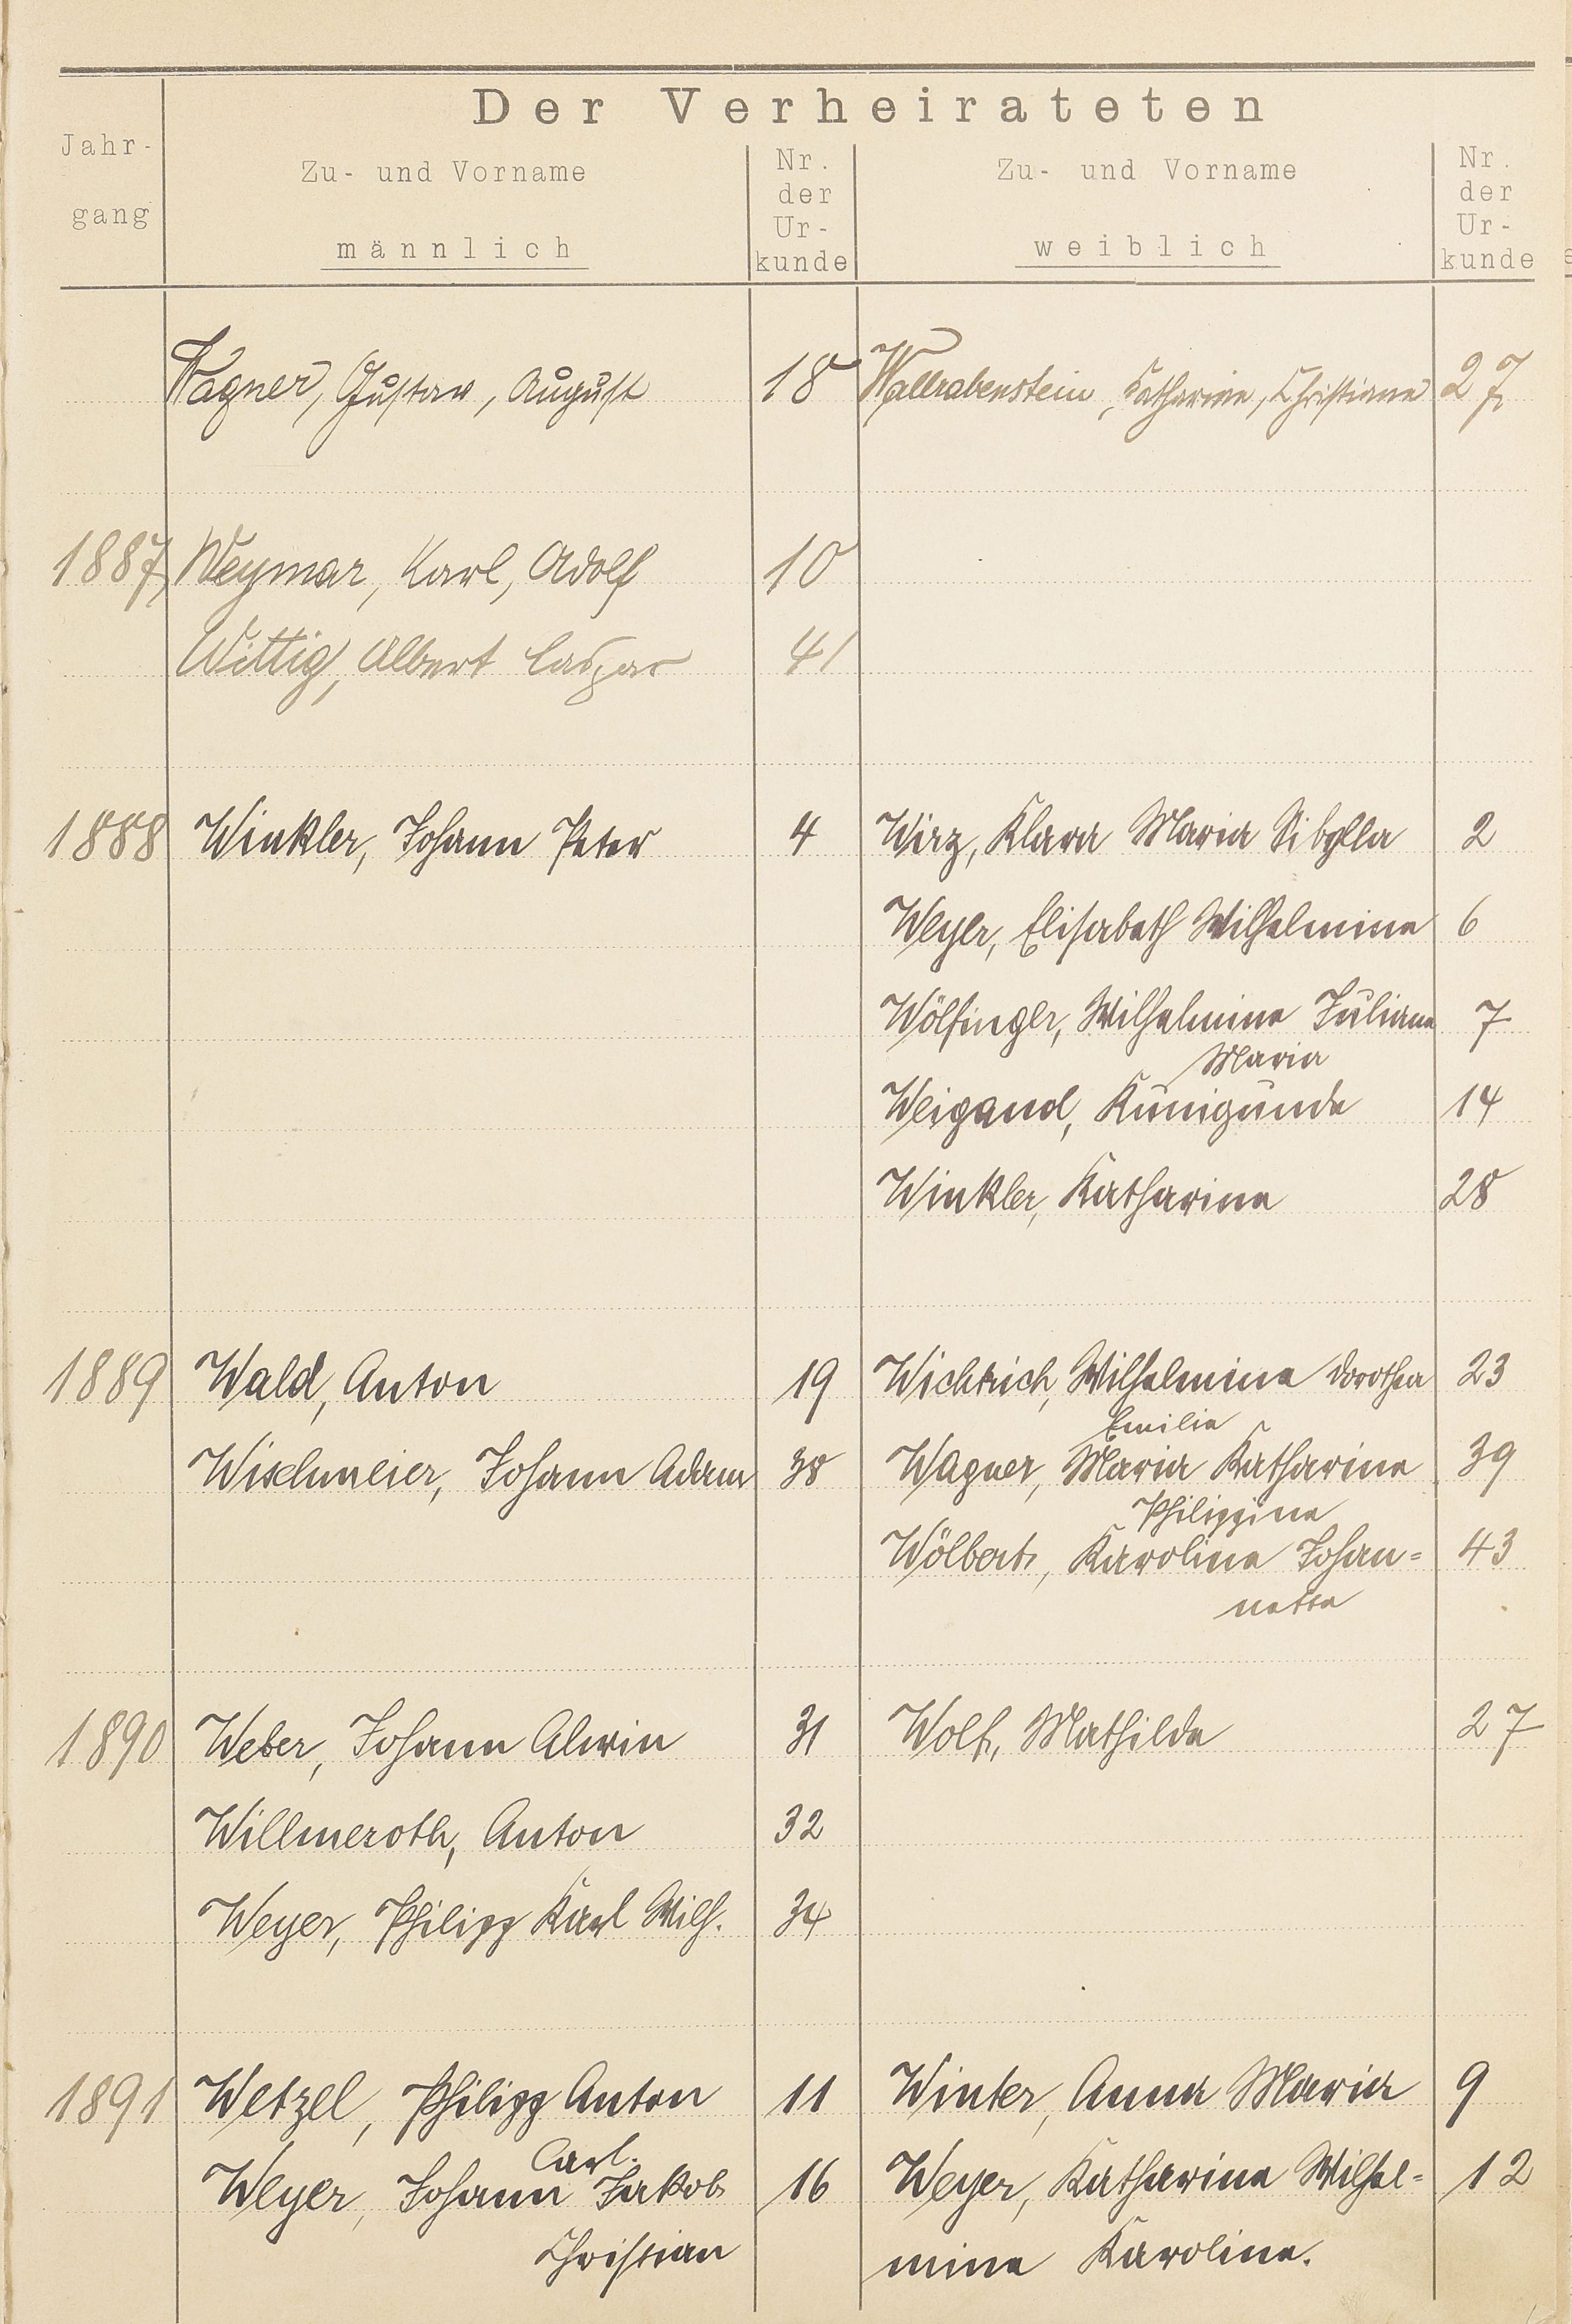 Der Verheirateten
Jahr-
gang
Zu- und Vorname
männlich
Nr.
der
Ur-
kunde
Zu- und Vorname
weiblich
Nr.
der
Ur-
kunde
Wagner, Gustav, August 18 Wallrabenstein, Katharine, Christiane 27
1887 Weymar, Karl, Adolf 10
Wittig, Albert Caspar 41
1888 Winkler, Johann Peter 4 Wirz, Klara Maria Sibylla 2
Weyer, Elisabeth Wilhelmine 6
Wölfinger, Wilhelmine Juliane 7
Maria
Weigand, Kunigunde 14
Winkler, Katharina 28
1889 Wald, Anton 19 Wichtrich, Wilhelmine Dorothea 23
Emilie
Wischmeier, Johann Adam 38 Wagner, Maria Katharine 39
Philippine
Wölbert, Karoline Johan= 43
nette
1890 Weber, Johann Alwin 31 Wolf, Mathilde 27
Willmeroth, Anton 32
Weyer, Philipp Karl Wilh. 34
1891 Wetzel, Philipp Anton 11 Winter, Anna Maria 9
Carl.
Weyer, Johann Jakob 16 Weyer, Katharine Wilhel= 12
Christian mine Karoline.